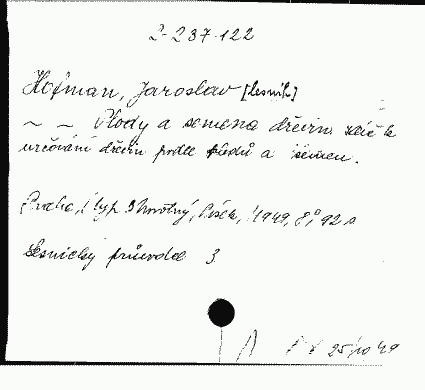 2-237.122
Hofman, Jaroslav [lesník]
~ ~ Plody a semena dřevin klíč k
určování dřevin podle plodů a semen.
Praha, typ. Novotný, Písek, 1949, 8°, 92 s
Lesnický průvodce 3
25/10 49